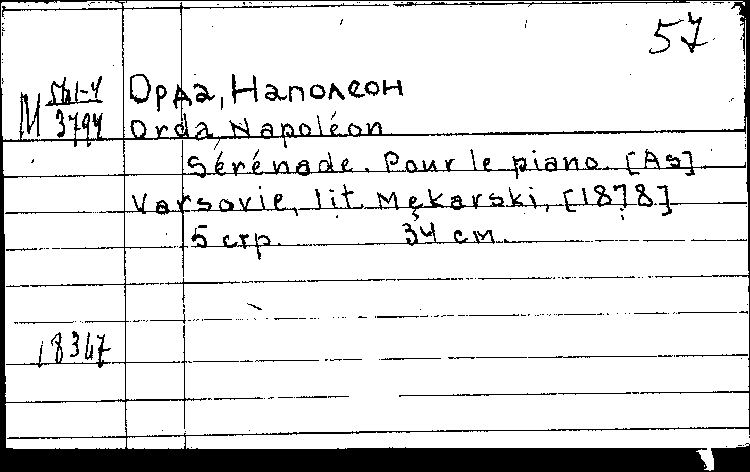 57
Орда, Наполеон
M 3794
Orda, Napoléon
Sérénade. Pour le piano. [As]
Varsovie, lit. Mękarski, [1878]
5 стр. 34 см.
18347